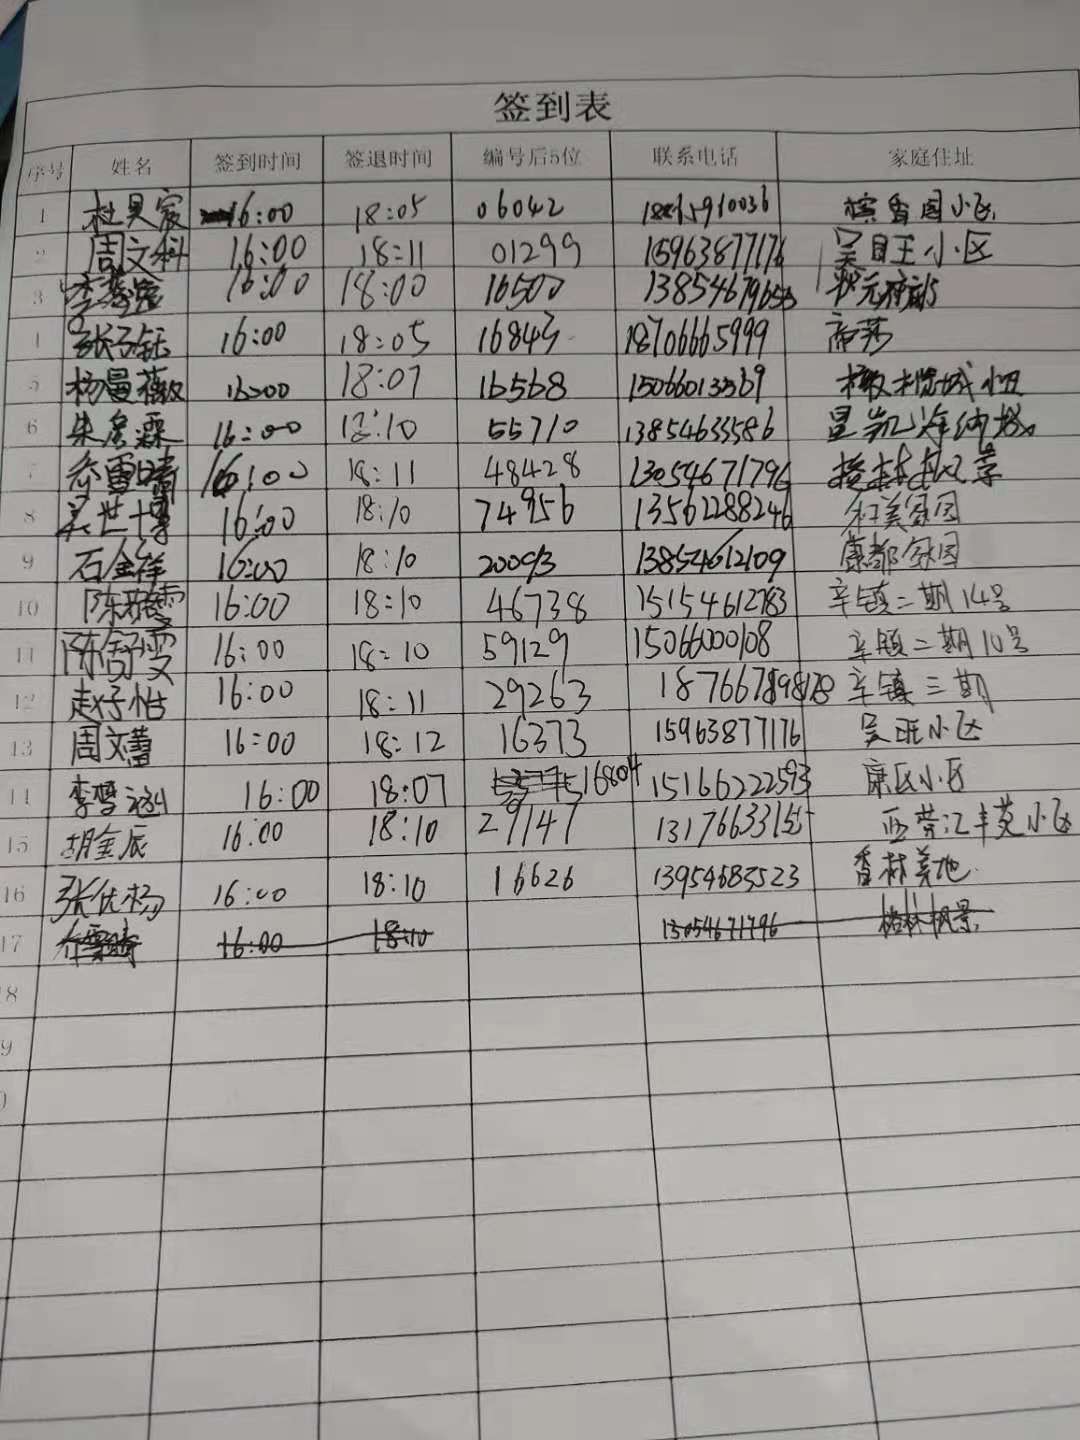 签到表
序号 姓名 签到时间 签退时间 编号后5位 联系电话 家庭住址
1 杜昊宸 16:00 18:05 06042 槟香园小区
2 周文科 16:00 18:11 01299 15963877176 吴旺小区
3 16:00 18:00 16500 状元府邸
张子钰 16:00 18:05 16843 18706665999 帝莎
5 杨曼薇 16:00 18:07 16568 15066013369
6 朱彦霖 16:00 18:10 55710 13854633586
7 乔雪晴 16:00 18:11 48428 13054671796
8 吴世博 16:00 18:10 74956 13562288246 和美家园
9 石金祥 16:00 18:10 20093 13854612109 康都家园
10 陈雅雯 16:00 18:10 46738 15154612783 辛镇二期14号
11 陈舒雯 16:00 18:10 59129 15066000108 辛镇二期10号
12 赵仔怡 16:00 18:11 29263 辛镇三期
13 周文蕾 16:00 18:12 16373 15963877176 吴旺小区
李雪 16:00 18:07 16804 15166222593 康区小区
15 胡金辰 16:00 18:10 29147 小区
16 张优杨 16:00 18:10 16626 13954683523 香林美地
17 16:00 18:10 13054671796 枫景